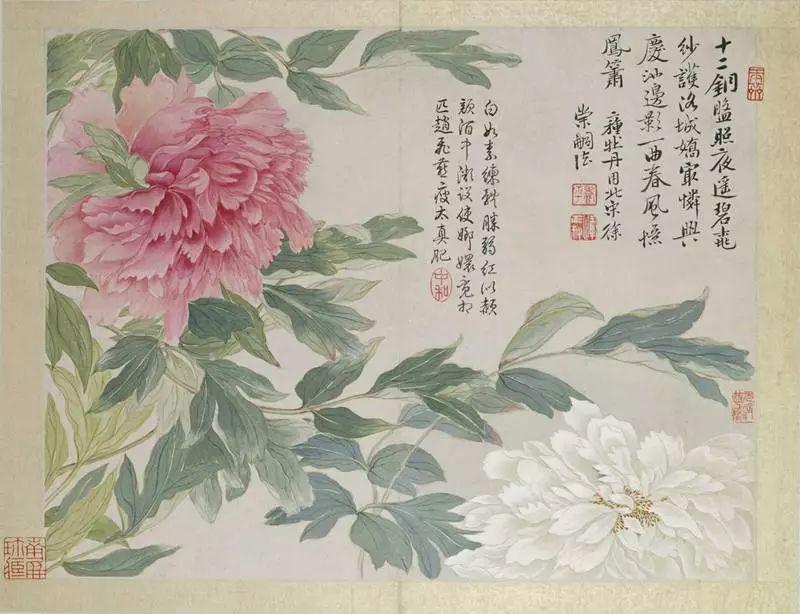 十二銅盤照夜遙碧桃
紗護洛城嬌最憐興
慶池邊影一曲春風憶
鳳簫 種牡丹用北宋徐
崇嗣法
白如素練輕勝弱紅似頳
顏酒半潮設使嫏嬛竟相
匹趙飛燕瘦太真肥
中和